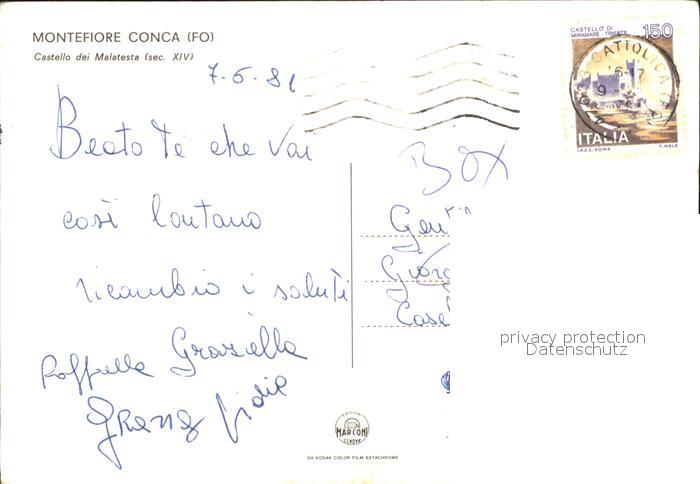 MONTEFIORE CONCA (FO)
Castello dei Malatesta (sec. XIV)
7.6.81
Beato te che vai
così lontano
ricambio i saluti
Raffaella Graziella
CASTELLO DI
MIRAMARE - TRIESTE
150
CATTOLICA
ITALIA
I.P.Z.S. - ROMA
T. MELE
BOX
Gen
Giorg
Case
privacy protection
Datenschutz
EDIZIONI
MARCONI
GENOVA
DA KODAK COLOR FILM EXTACHROME